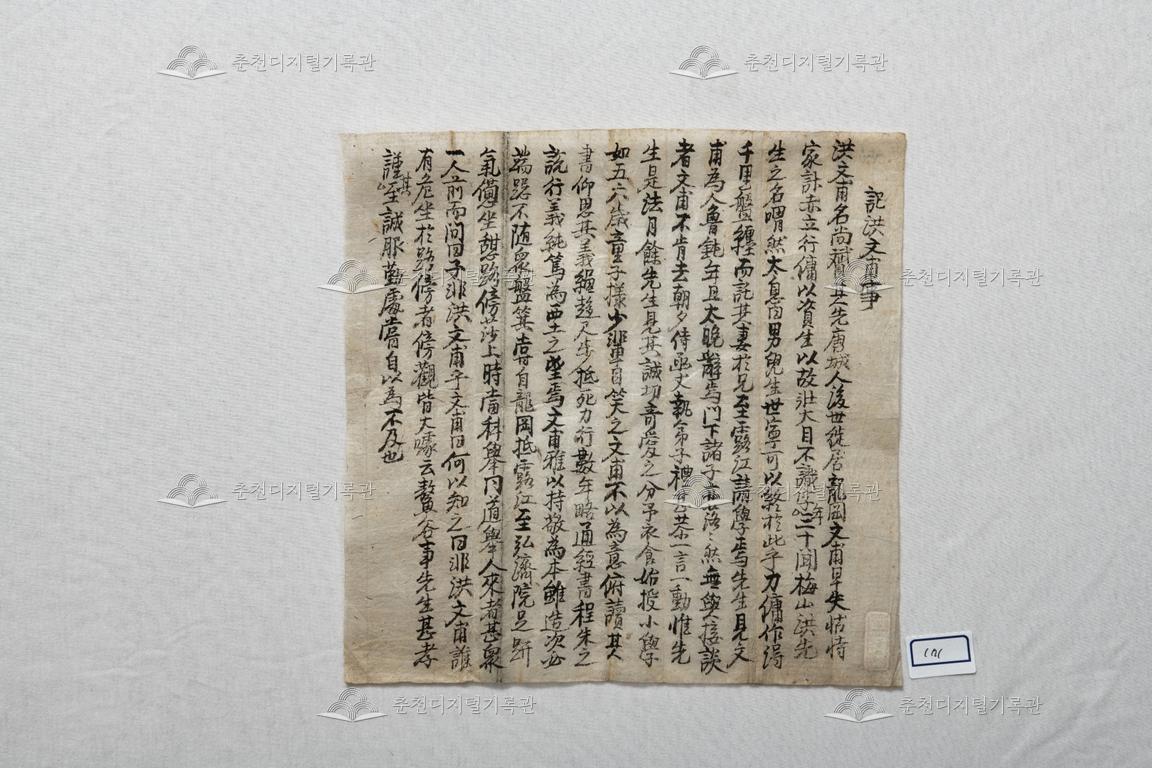 記洪文甫事
洪文甫名尚斌其先唐城人後世徙居龍岡文甫早失怙恃
家計赤立行傭以資生以故壯大目不識字年三十聞梅山洪先
生之名喟然太息曰男兒生世寧可以斃於此乎力傭作得
千里盤纏而託其妻於兄至露江請學焉先生見文
甫為人魯鈍年且太晚辭焉門下諸子亦落〻然無與接談
者文甫不肯去朝夕侍函丈執弟子禮甚恭一言一動惟先
生是法月餘先生見其誠切奇愛之分予衣食始授小學
如五六歲童子樣少輩目笑之文甫不以為意俯讀其
書仰思其義繩趨尺步抵死力行數年略通經書程朱之
說行義純篤為西土之望焉文甫雅以持敬為本雖造次必
端跽不隨衆盤箕嘗自龍岡抵露江至弘濟院足趼
氣憊坐憩路傍莎上時當科擧同道擧人來者甚衆
一人前而問曰子非洪文甫乎文甫曰何以知之曰非洪文甫誰
有危坐於路傍者傍觀皆大噱云鰲谷事先生甚孝
謹其至誠服勤處嘗自以為不及也
춘천디지털기록관
춘천디지털기록관
춘천디지털기록관
춘천디지털기록관
춘천디지털기록관
춘천디지털기록관
춘천디지털기록관
춘천디지털기록관